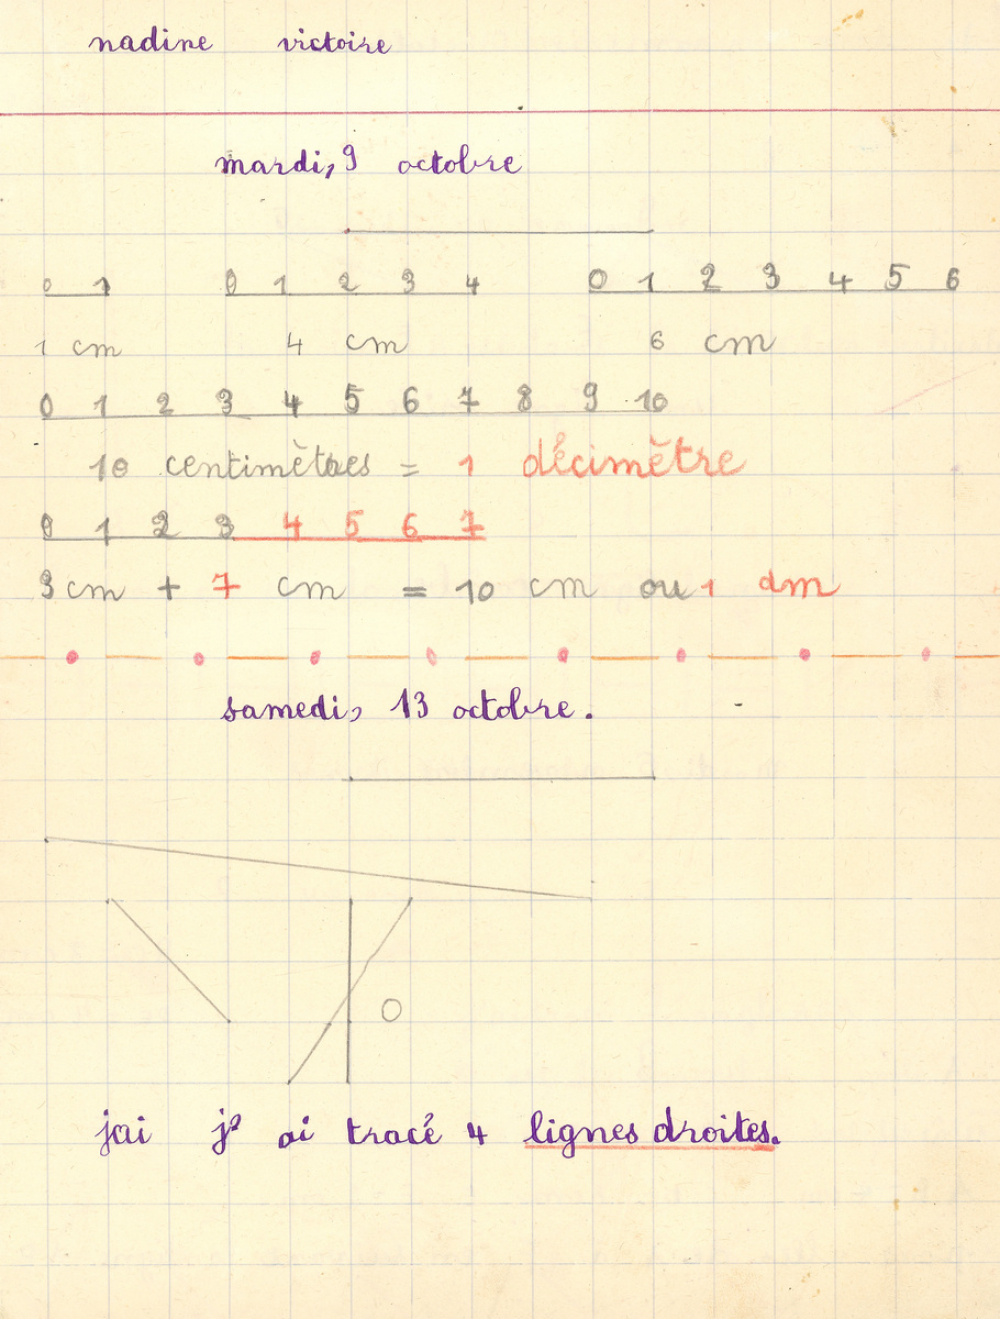 nadine victoire
mardi, 9 octobre
0 1 0 1 2 3 4 0 1 2 3 4 5 6
1 cm 4 cm 6 cm
0 1 2 3 4 5 6 7 8 9 10
10 centimètres = 1 décimètre
0 1 2 3 4 5 6 7
3 cm + 7 cm = 10 cm ou 1 dm
samedi, 13 octobre.
O
jai j' ai tracé 4 lignes droites.